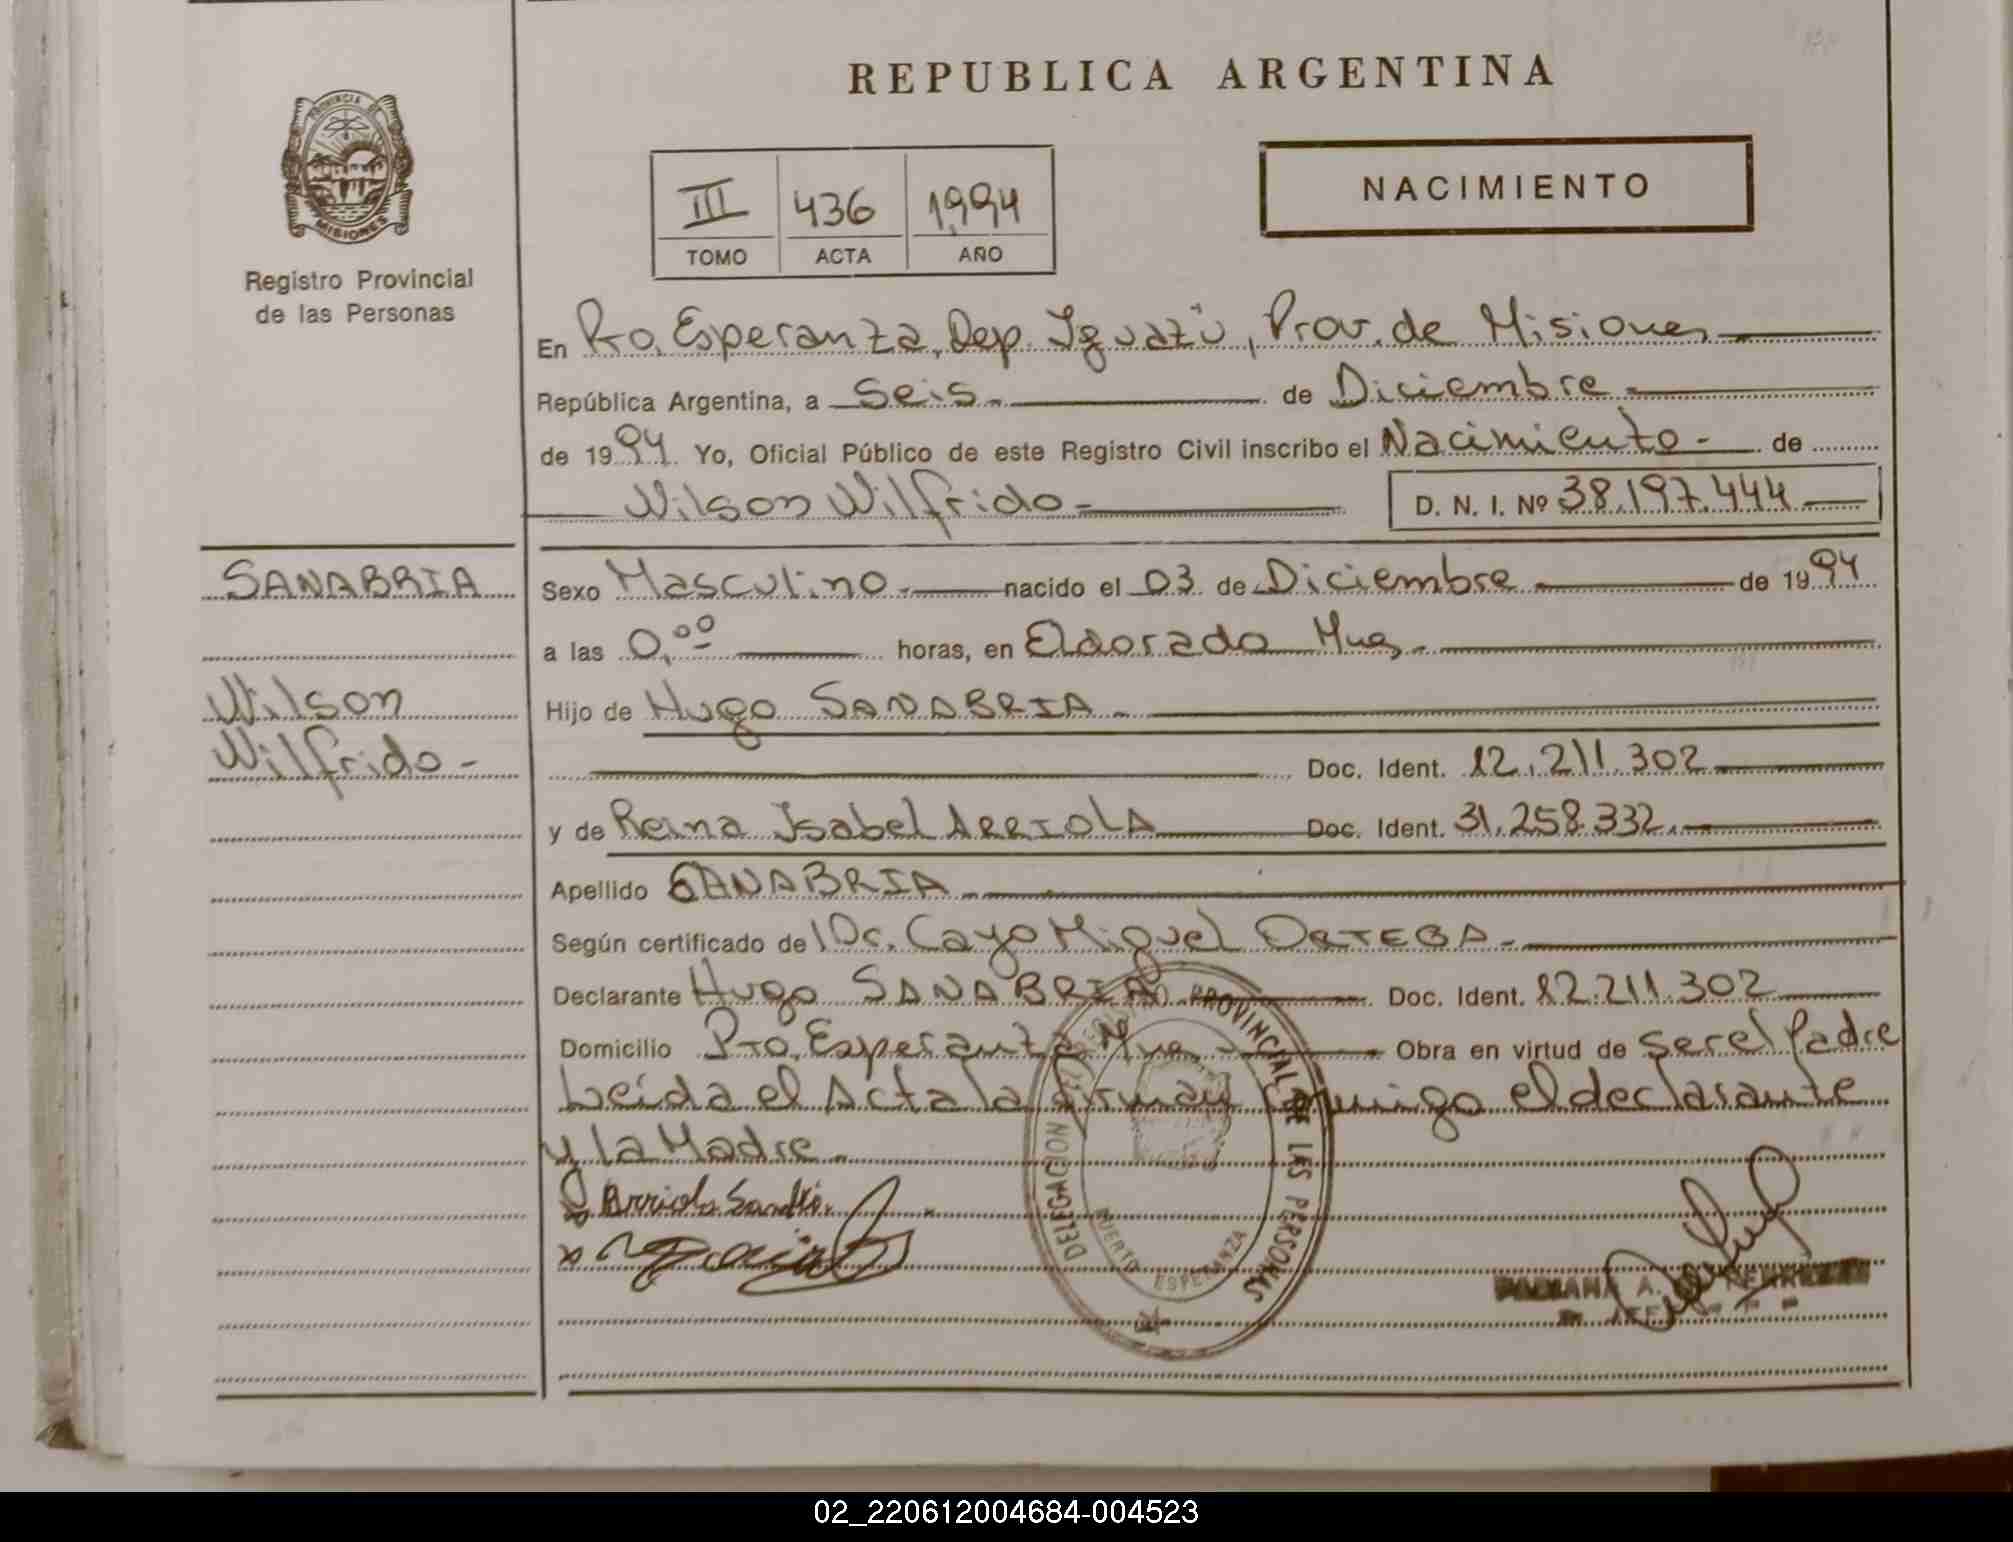 REPUBLICA ARGENTINA
PROVINCIA DE
MISIONES
Registro Provincial
de las Personas
III 436 1,994
TOMO ACTA AÑO
NACIMIENTO
En Pto. Esperanza, Dep. Iguazú, Prov. de Misiones
República Argentina, a Seis.- de Diciembre.-
de 1994. Yo, Oficial Público de este Registro Civil inscribo el Nacimiento.- de
Wilson Wilfrido.- D. N. I. Nº 38.197.444
SANABRIA
Wilson
Wilfrido.-
Sexo Masculino.- nacido el 03 de Diciembre de 1994
a las 0,00 horas, en Eldorado Mnes.-
Hijo de Hugo SANABRIA.-
Doc. Ident. 12.211.302
y de Reina Isabel ARRIOLA Doc. Ident. 31.258.332.-
Apellido SANABRIA.-
Según certificado de Dr. Cayo Miguel ORTEGA.-
Declarante Hugo SANABRIA Doc. Ident. 12.211.302
Domicilio Pto. Esperanza Mnes.- Obra en virtud de ser el Padre
Leída el Acta la firman conmigo el declarante
y la Madre.-
Arriola
DELEGACION
PROVINCIAL DE LES PERSONAS
PUERTO ESPERANZA
A.
02_220612004684-004523